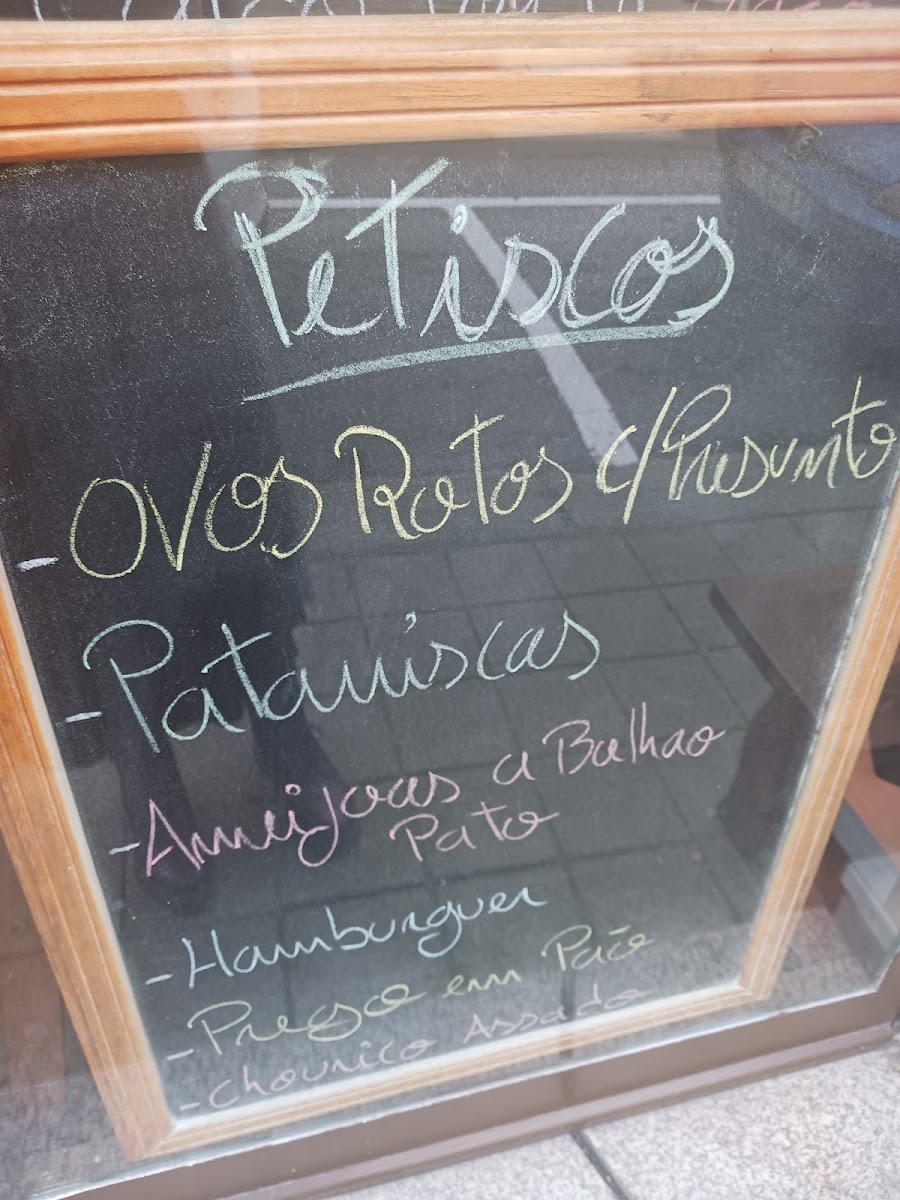 Petiscos
- Ovos Rotos c/Presunto
- Pataniscas
- Ameijoas a Bulhao
Pato
- Hamburguer
- Prego em Pão
- Chourico Assado